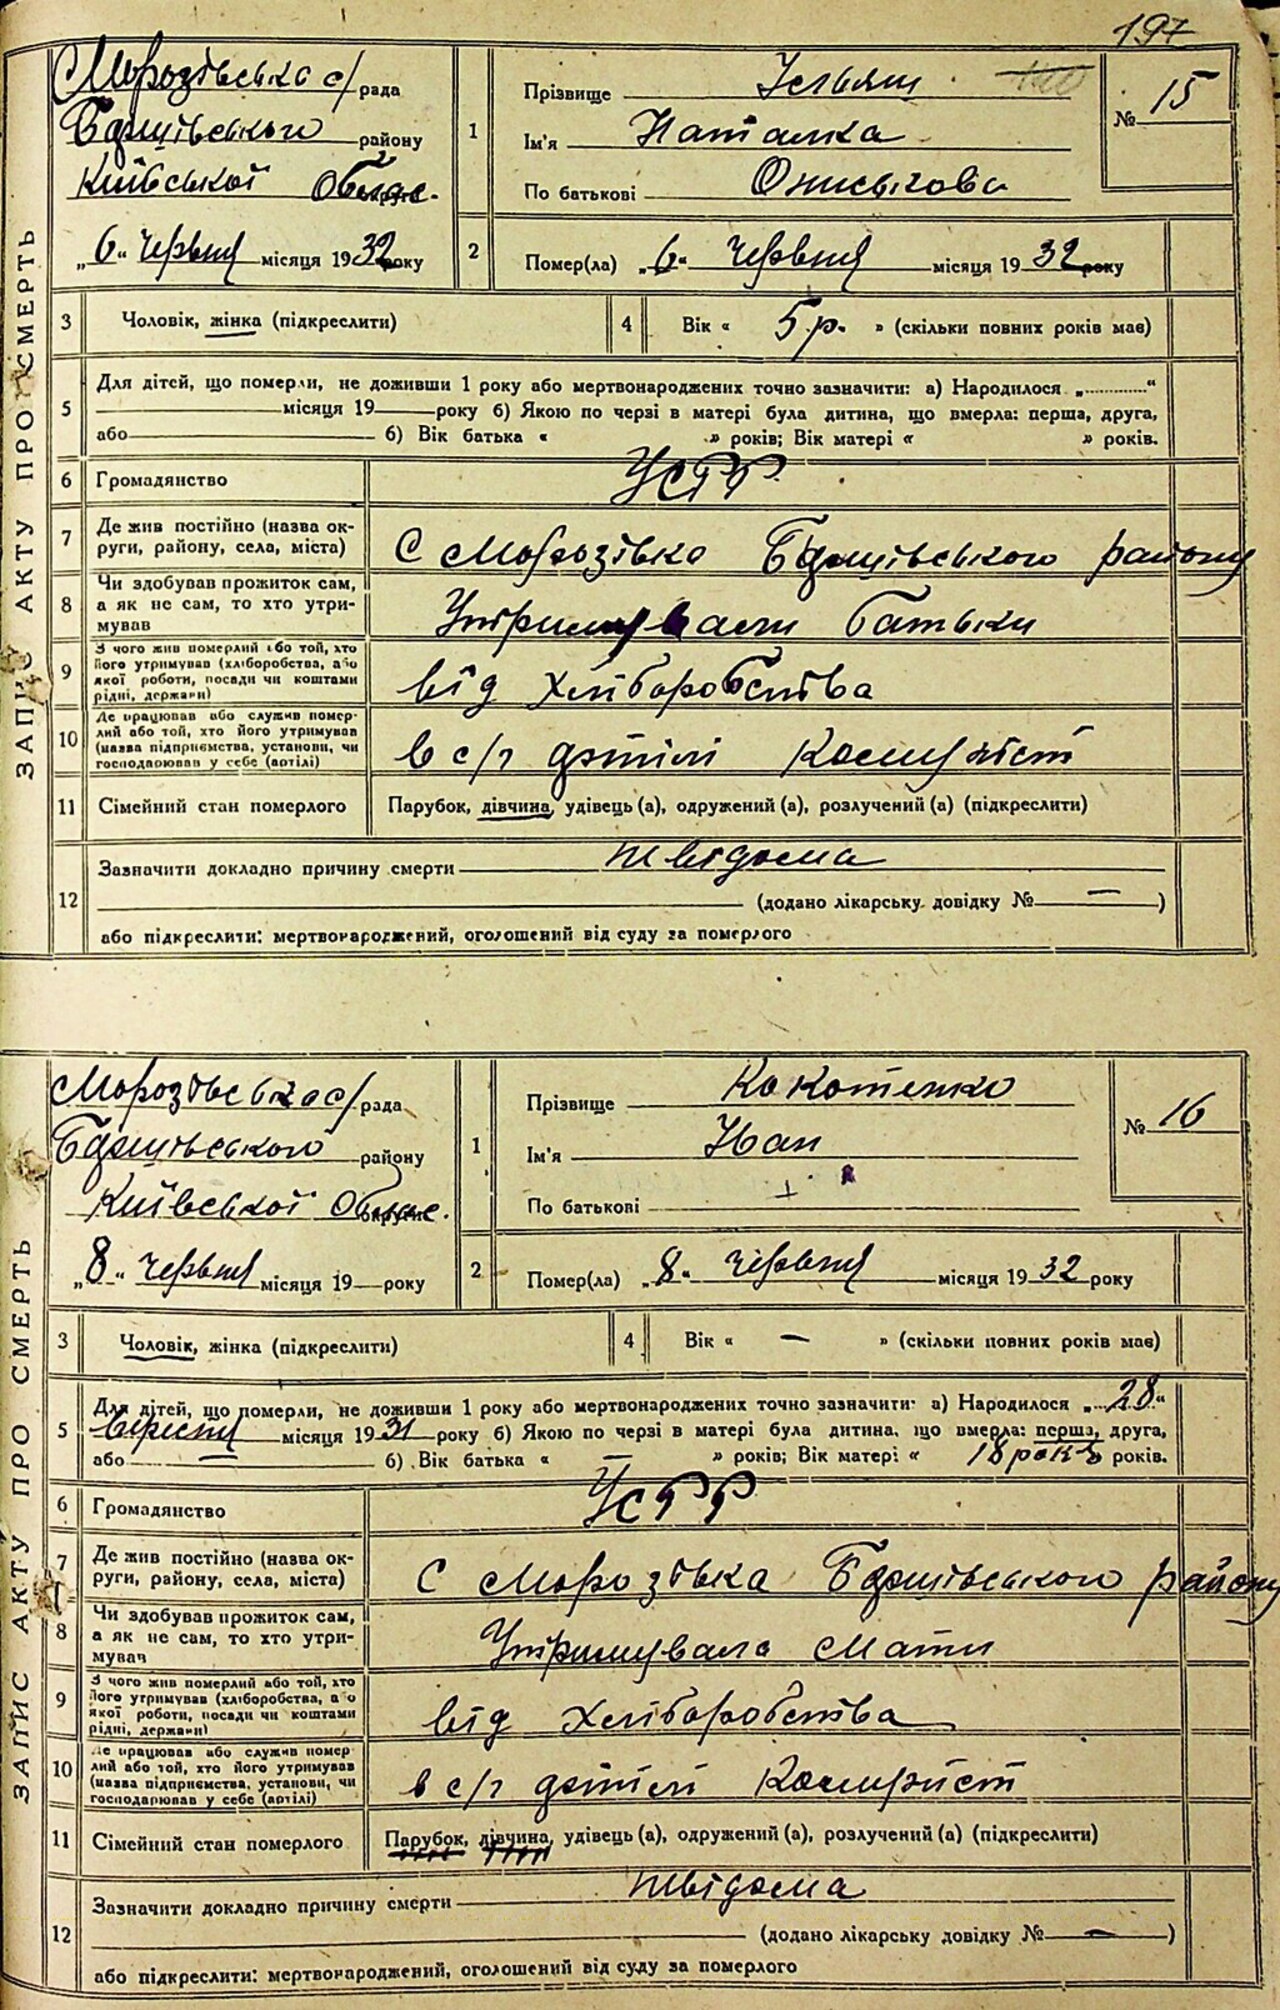 197
ЗАПИС АКТУ ПРО СМЕРТЬ
Морозівська с/рада
Бдишівського району
Київської Облас.
„6“ червня місяця 1932 року
1 Прізвище Ільяш
Ім'я Наталка
По батькові Ониськова
№ 15
2 Помер(ла) „6“ червня місяця 1932 року
3 Чоловік, жінка (підкреслити)
4 Вік « 5 р. » (скільки повних років має)
5 Для дітей, що померли, не доживши 1 року або мертвонароджених точно зазначити: а) Народилося „ “
місяця 19 року б) Якою по черзі в матері була дитина, що вмерла: перша, друга,
або б) Вік батька « » років; Вік матері « » років.
6 Громадянство УСРР
7 Де жив постійно (назва ок-
руги, району, села, міста) С Морозівка Бдишівського району
8 Чи здобував прожиток сам,
а як не сам, то хто утри-
мував Утримували батьки
9 З чого жив померлий або той, хто
його утримував (хліборобства, або
якої роботи, посади чи коштами
рідні, держави) від хліборобства
10 Де працював або служив помер-
лий або той, хто його утримував
(назва підприємства, установи, чи
господарював у себе (артілі) в с/г артілі Комуніст
11 Сімейний стан померлого Парубок, дівчина, удівець (а), одружений (а), розлучений (а) (підкреслити)
12 Зазначити докладно причину смерти невідома
(додано лікарську довідку № — )
або підкреслити: мертвонароджений, оголошений від суду за померлого
ЗАПИС АКТУ ПРО СМЕРТЬ
Морозівська с/рада
Бдишівського району
Київської Облас.
„8“ червня місяця 19 — року
1 Прізвище Кокотенко
Ім'я Іван
По батькові
№ 16
2 Помер(ла) „8“ червня місяця 1932 року
3 Чоловік, жінка (підкреслити)
4 Вік « — » (скільки повних років має)
5 Для дітей, що померли, не доживши 1 року або мертвонароджених точно зазначити: а) Народилося „28“
вересня місяця 1931 року б) Якою по черзі в матері була дитина, що вмерла: перша, друга,
або — б) Вік батька « — » років; Вік матері « 18 років років.
6 Громадянство УСРР
7 Де жив постійно (назва ок-
руги, району, села, міста) С Морозівка Бдишівського району
8 Чи здобував прожиток сам,
а як не сам, то хто утри-
мував Утримувала мати
9 З чого жив померлий або той, хто
його утримував (хліборобства, або
якої роботи, посади чи коштами
рідні, держави) від хліборобства
10 Де працював або служив помер
лий або той, хто його утримував
(назва підприємства, установи, чи
господарював у себе (артілі) в с/г артілі Комуніст
11 Сімейний стан померлого Парубок, дівчина, удівець (а), одружений (а), розлучений (а) (підкреслити)
12 Зазначити докладно причину смерти невідома
(додано лікарську довідку № — )
або підкреслити: мертвонароджений, оголошений від суду за померлого